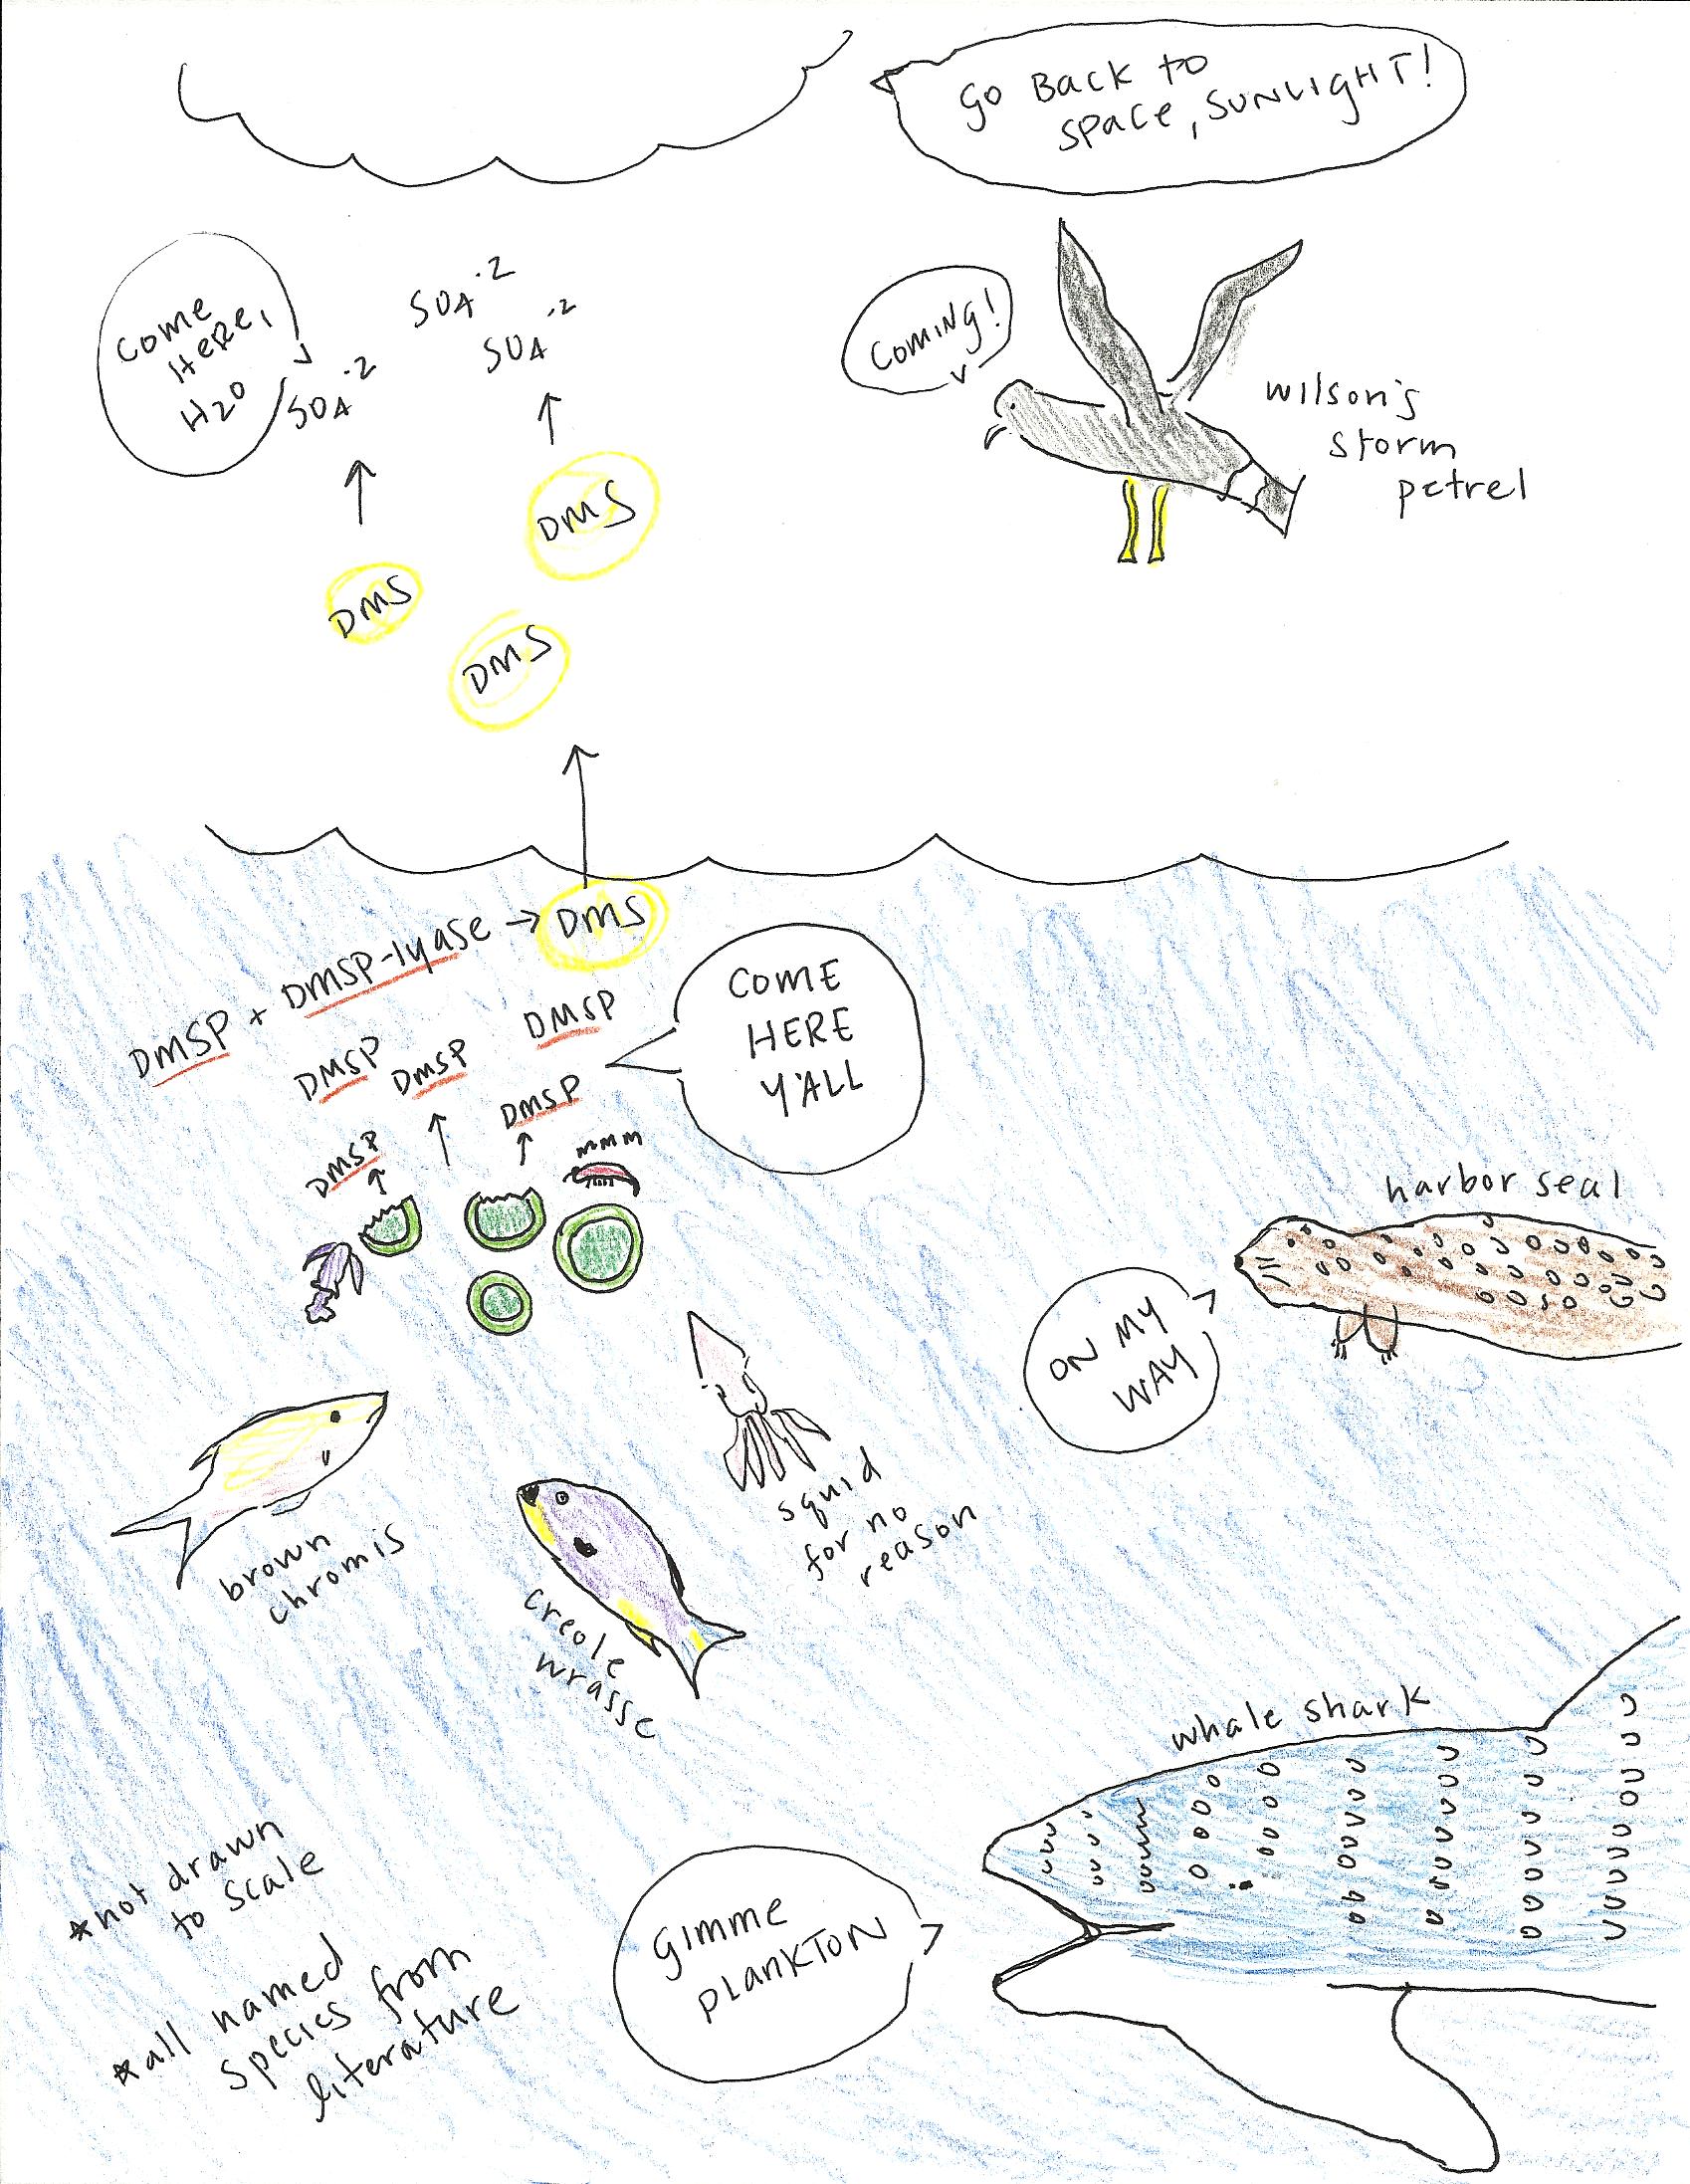 GO BACK TO
SPACE, SUNLIGHT!
COME
HERE,
H2O
SO4-2
SO4-2
SO4-2
COMING!
wilson's
storm
petrel
DMS
DMS
DMS
DMSP + DMSP-lyase → DMS
COME
HERE
Y'ALL
DMSP
DMSP
DMSP
DMSP
DMSP
MMM
harbor seal
ON MY
WAY
brown
chromis
creole
wrasse
squid
for no
reason
whale shark
GIMME
PLANKTON
*not drawn
to scale
*all named
species from
literature